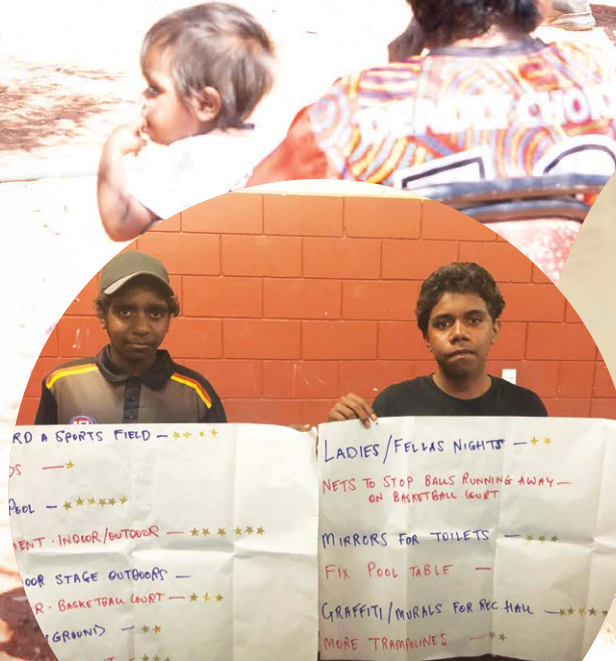 DEADLY CHO
RD A SPORTS FIELD –
DS –
POOL –
MENT · INDOOR/OUTDOOR –
OOR STAGE OUTDOORS –
R · BASKETBALL COURT –
GROUND –
LADIES/FELLAS NIGHTS –
NETS TO STOP BALLS RUNNING AWAY –
ON BASKETBALL COURT
MIRRORS FOR TOILETS –
FIX POOL TABLE –
GRAFFITI/MURALS FOR REC. HALL –
MORE TRAMPOLINES –